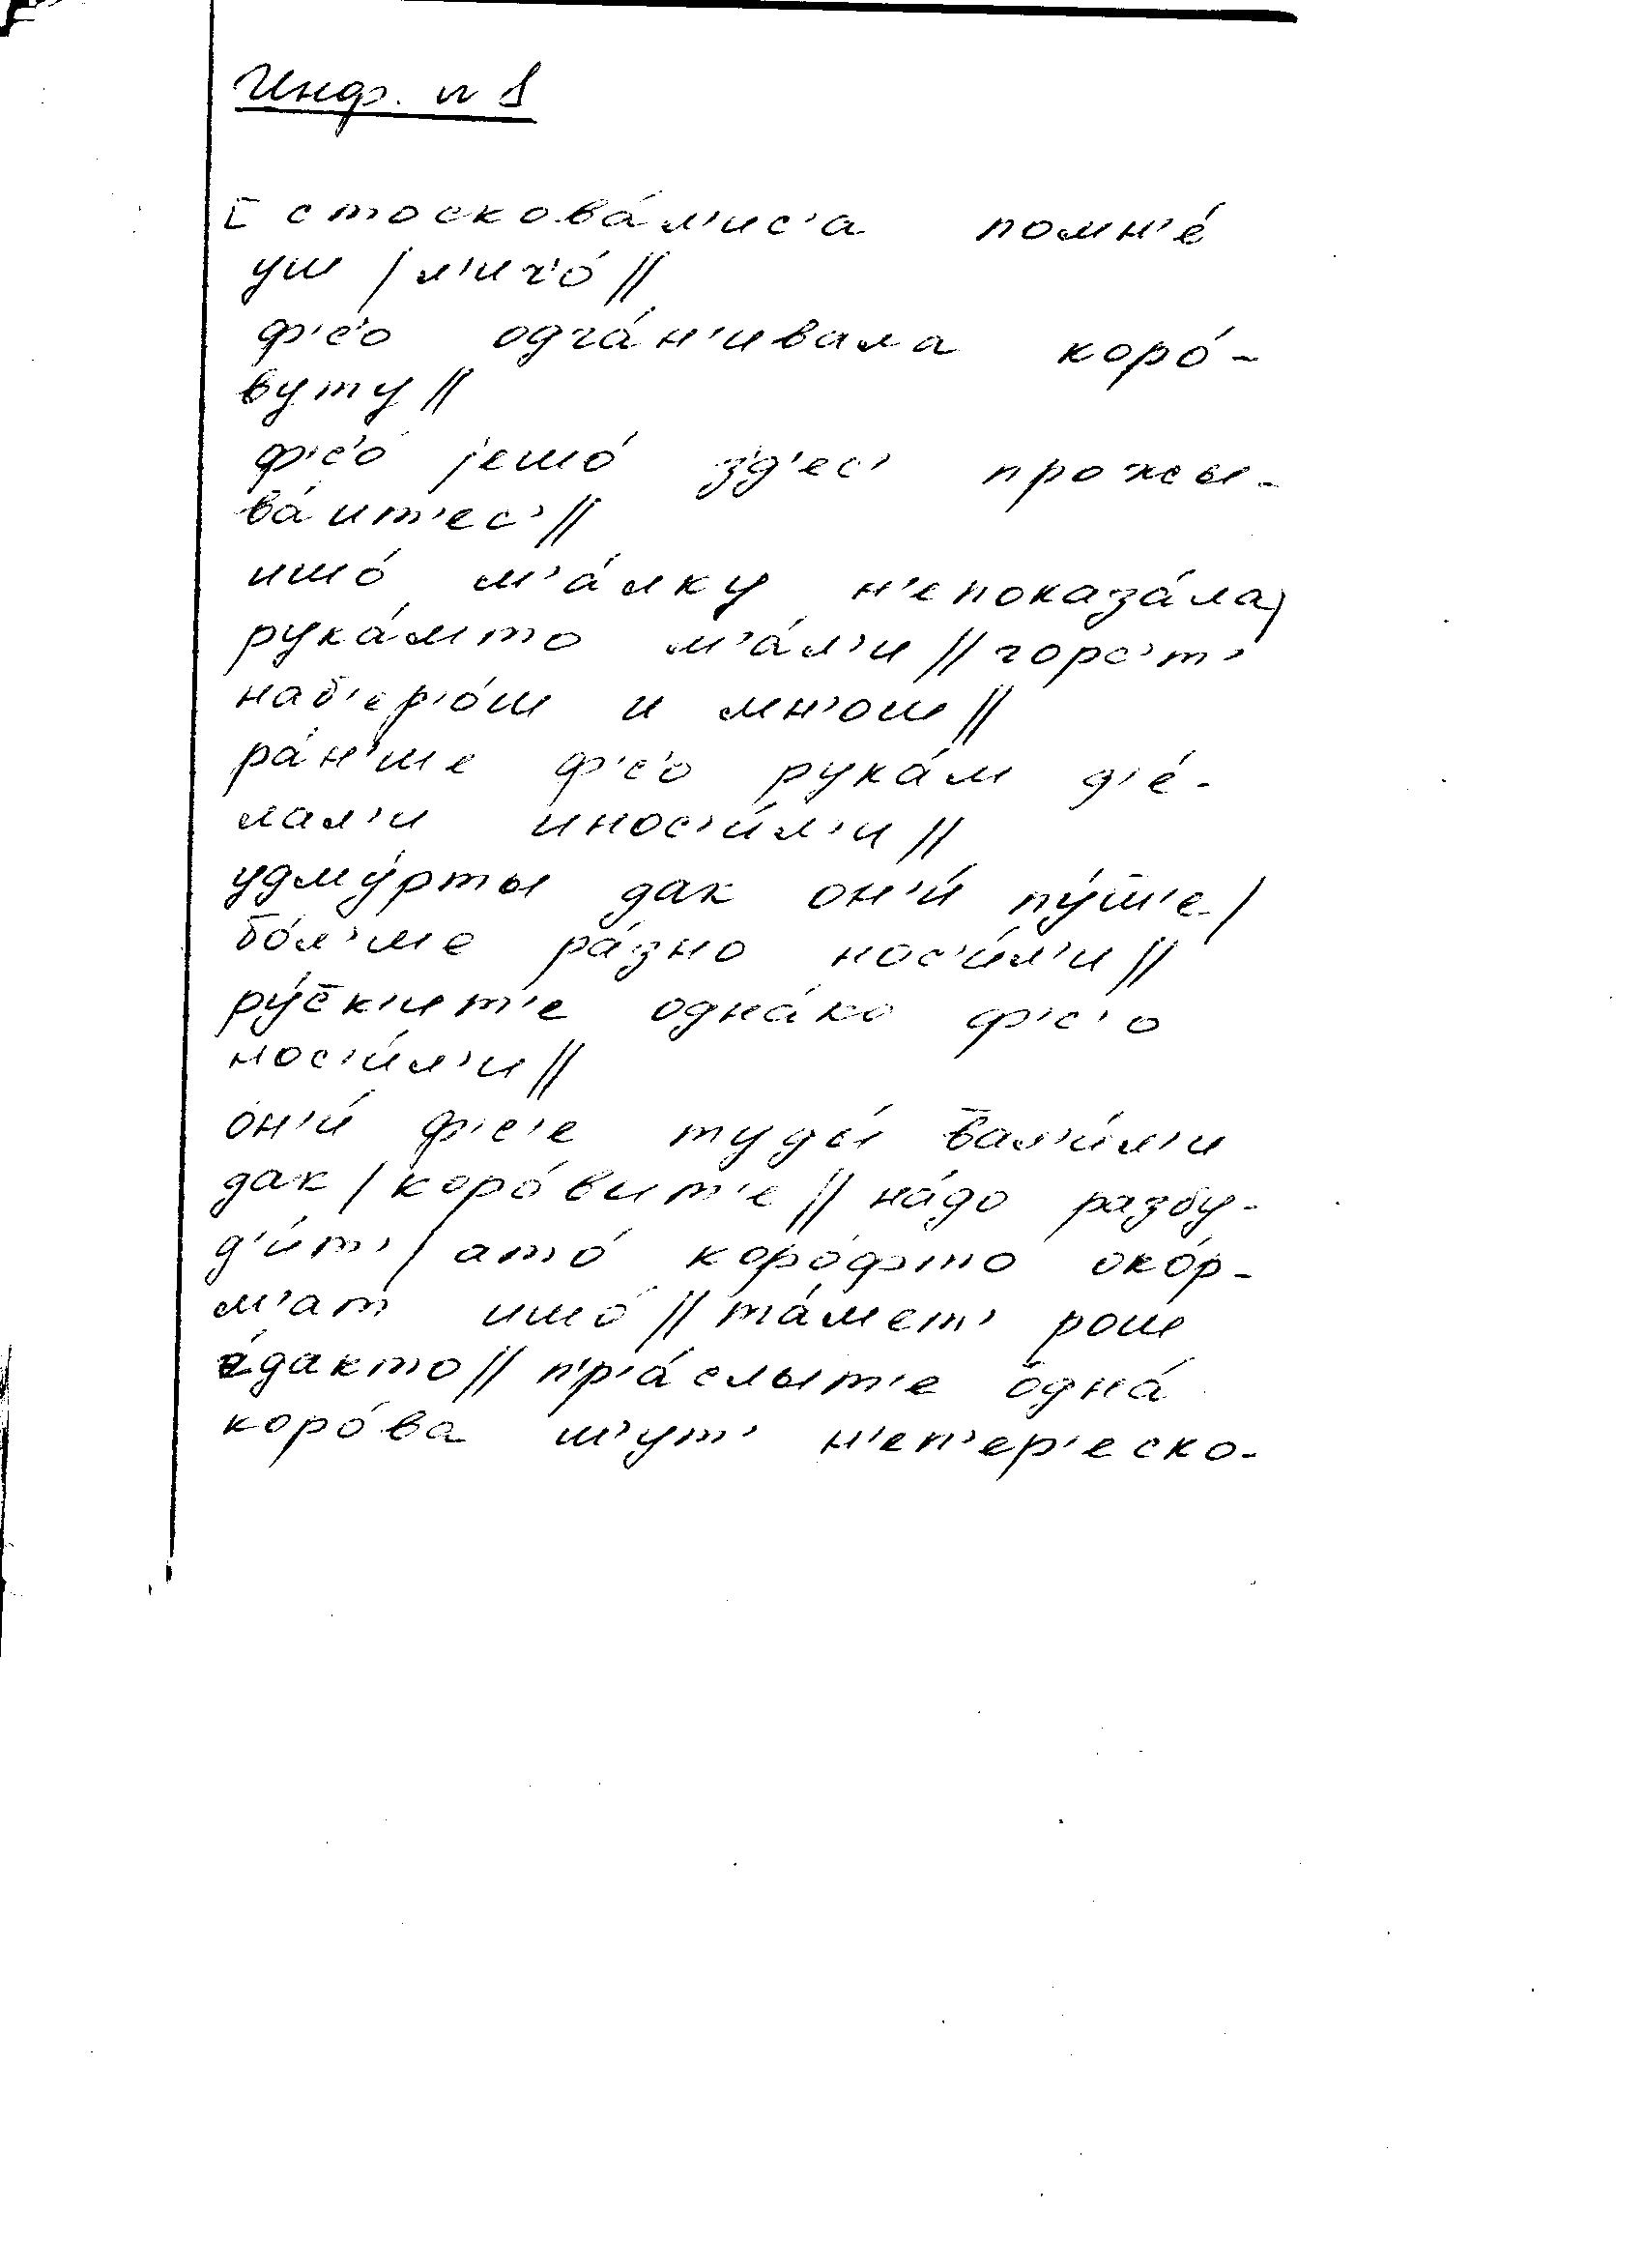 Инф. № 1
[ стоскова́л'ис'а помн'е́
уш / л'ич'о́ //
ф'с'о одга́н'ивала коро́-
вуту //
ф'с'о́ јешо́ з'д'ес' прожы-
ва́ит'ес' //
ишо́ м'а́лку н'епоказа́ла,
рука́мто м'а́л'и // горс'т'
наб'ер'о́ш и мн'ош //
ра́н'ше ф'с'о рука́м д'е́-
лал'и инос'и́л'и //
удму́рты дак он'и́ пу́ш̄'е /
бо́л'ше ра́зно нос'и́л'и //
ру́с̄к'ит'е одна́ко ф'с'о
нос'и́л'и //
он'и́ ф'с'е туды́ в̄ал'и́л'и
дак / коро́вит'е // на́до разбу-
д'и́т' / ато́ коро́фто око́р-
м'ат ишо́ // та́мет' рош
е́дакто // п'р'а́слыт'е одна́
коро́ва ш'ут' н'еп'ер'еско-